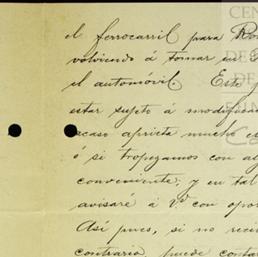 el ferrocarril para
volviendo á tomar en
el automóvil. Este
estar sujeto á modificac
acaso aprieta mucho e
o si tropezamos con al
conveniente; y en tal
avisaré á Vd con opor
Así pues, si no reci
contrario, puede conta
CEN
DE
DE